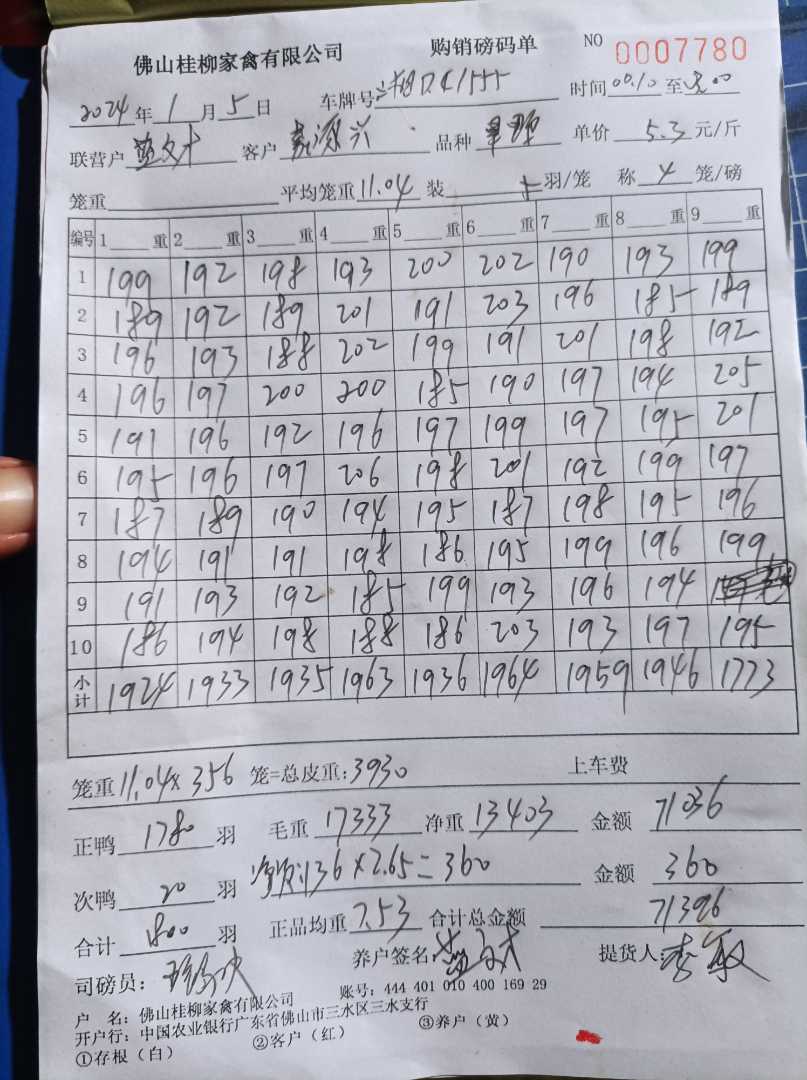 佛山桂柳家禽有限公司 购销磅码单 NO 0007780
2024年1月5日 车牌号 时间00.10至
联营户 客户 品种 单价5.3元/斤
笼重 平均笼重11.04装5羽/笼 称4笼/磅
编号 1 重 2 重 3 重 4 重 5 重 6 重 7 重 8 重 9 重
1 199 192 198 193 200 202 190 193 199
2 189 192 189 201 191 203 196 185 189
3 196 193 188 202 199 191 201 198 192
4 196 197 200 200 185 190 197 194 205
5 191 196 192 196 197 199 197 195 201
6 195 196 197 206 198 201 192 199 197
7 187 189 190 194 195 187 198 195 196
8 194 191 191 198 186 195 199 196 199
9 191 193 192 185 199 193 196 194
10 186 194 198 188 186 203 193 197 195
小计 1924 1933 1935 1963 1936 1964 1959 1946 1773
笼重11.04×356笼=总皮重:3930 上车费
正鸭1780羽 毛重17333净重13403 金额71036
次鸭20羽 136×2.65=360 金额360
合计1800羽 正品均重7.53合计总金额71396
司磅员: 养户签名: 提货人:
户 名: 佛山桂柳家禽有限公司 账号: 444 401 010 400 169 29
开户行: 中国农业银行广东省佛山市三水区三水支行
①存根(白) ②客户(红) ③养户(黄)